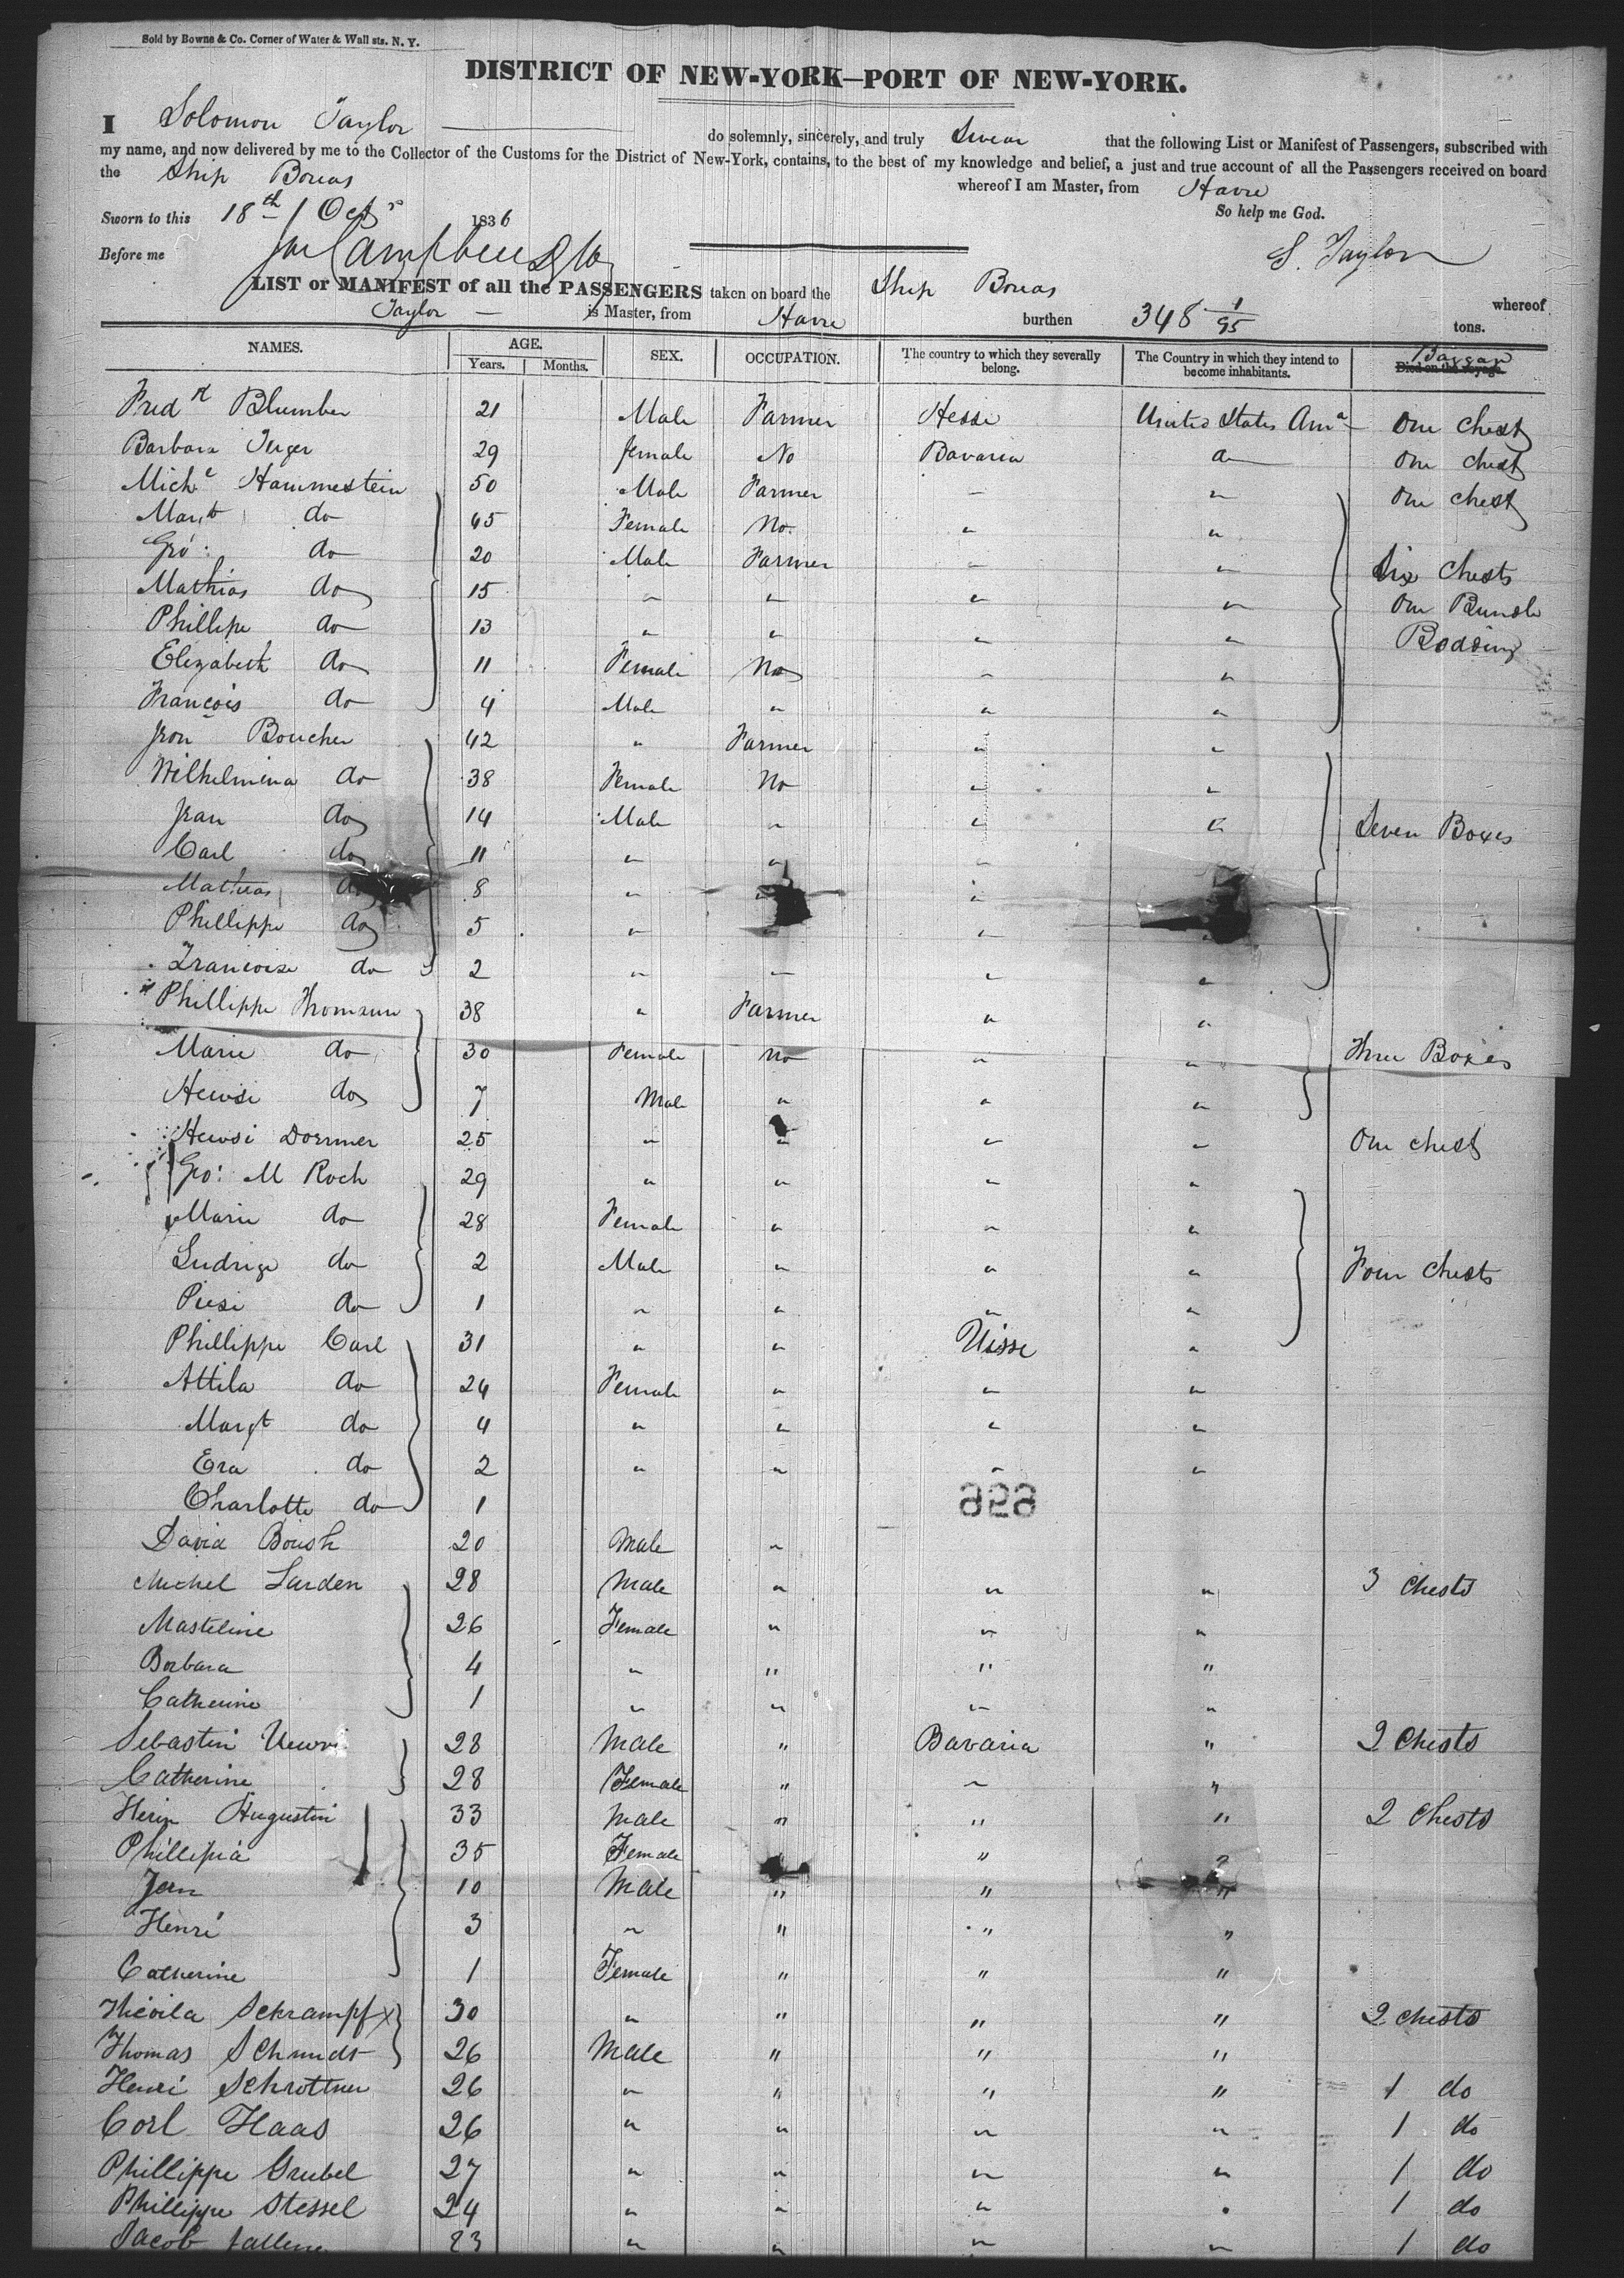 Sold by Bowne & Co. Corner of Water & Wall sts. N. Y.
DISTRICT OF NEW-YORK—PORT OF NEW-YORK.
I Solomon Taylor do solemnly, sincerely, and truly Swear that the following List or Manifest of Passengers, subscribed with
my name, and now delivered by me to the Collector of the Customs for the District of New-York, contains, to the best of my knowledge and belief, a just and true account of all the Passengers received on board
the Ship Boreas whereof I am Master, from Havre
Sworn to this 18th Oct 1836 So help me God.
Before me S. Taylor
LIST or MANIFEST of all the PASSENGERS taken on board the Ship Boreas whereof
Taylor is Master, from Havre burthen 348 1/95 tons.
NAMES. AGE. Years. Months. SEX. OCCUPATION. The country to which they severally belong. The Country in which they intend to become inhabitants. Died on the voyage.
Fredk Blumber 21 Male Farmer Hesse United States Ama One Chest
Barbara 29 female No Bavaria One Chest
Michl Hammestein 50 Male Farmer " " One Chest
Margt do 45 Female No " "
Geo: do 20 Male Farmer " " Six Chests
Mathias do 15 " " " " One Bundle
Phillipe do 13 " " " " Bedding
Elizabeth do 11 Female No " "
François do 4 Male " " "
Jean Boucher 42 " Farmer " "
Wilhelmina do 38 Female No " "
Jean do 14 Male " " " Seven Boxes
Carl do 11 " " "
Mathias do 8 " " "
Phillippe do 5 " " " "
Francoise do 2 " " " "
Phillippe 38 " Farmer " "
Marie do 30 Female No " " Three Boxes
Henri do 7 Male " " "
Henri Dormer 25 " " " " One Chest
Geo: M Roch 29 " " " "
Marie do 28 Female " " "
Ludwig do 2 Male " " " Four Chests
do 1 " " " "
Phillippe Carl 31 " " "
Attila do 24 Female " " "
Margt do 4 " " " "
Eva do 2 " " " "
Charlotte do 1
David Boush 20 Male "
Michel Larden 28 Male " " " 3 Chests
Masteline 26 Female " " "
Barbara 4 " " " "
Catherine 1 " " " "
Sebastin 28 Male " Bavaria " 2 Chests
Catherine 28 Female " " "
Augustin 33 Male " " " 2 Chests
Phillipia 35 Female " "
Jean 10 Male " " "
Henri 3 " " " "
Catherine 1 Female " " "
Schrampf x 30 " " " " 2 chests
Thomas Schmidt 26 Male " " "
Henri Schrottner 26 " " " " 1 do
Carl Haas 26 " " " " 1 do
Phillippe Grubel 27 " " " " 1 do
Phillippe Stessel 24 " " " " 1 do
Jacob 23 " " " " 1 do